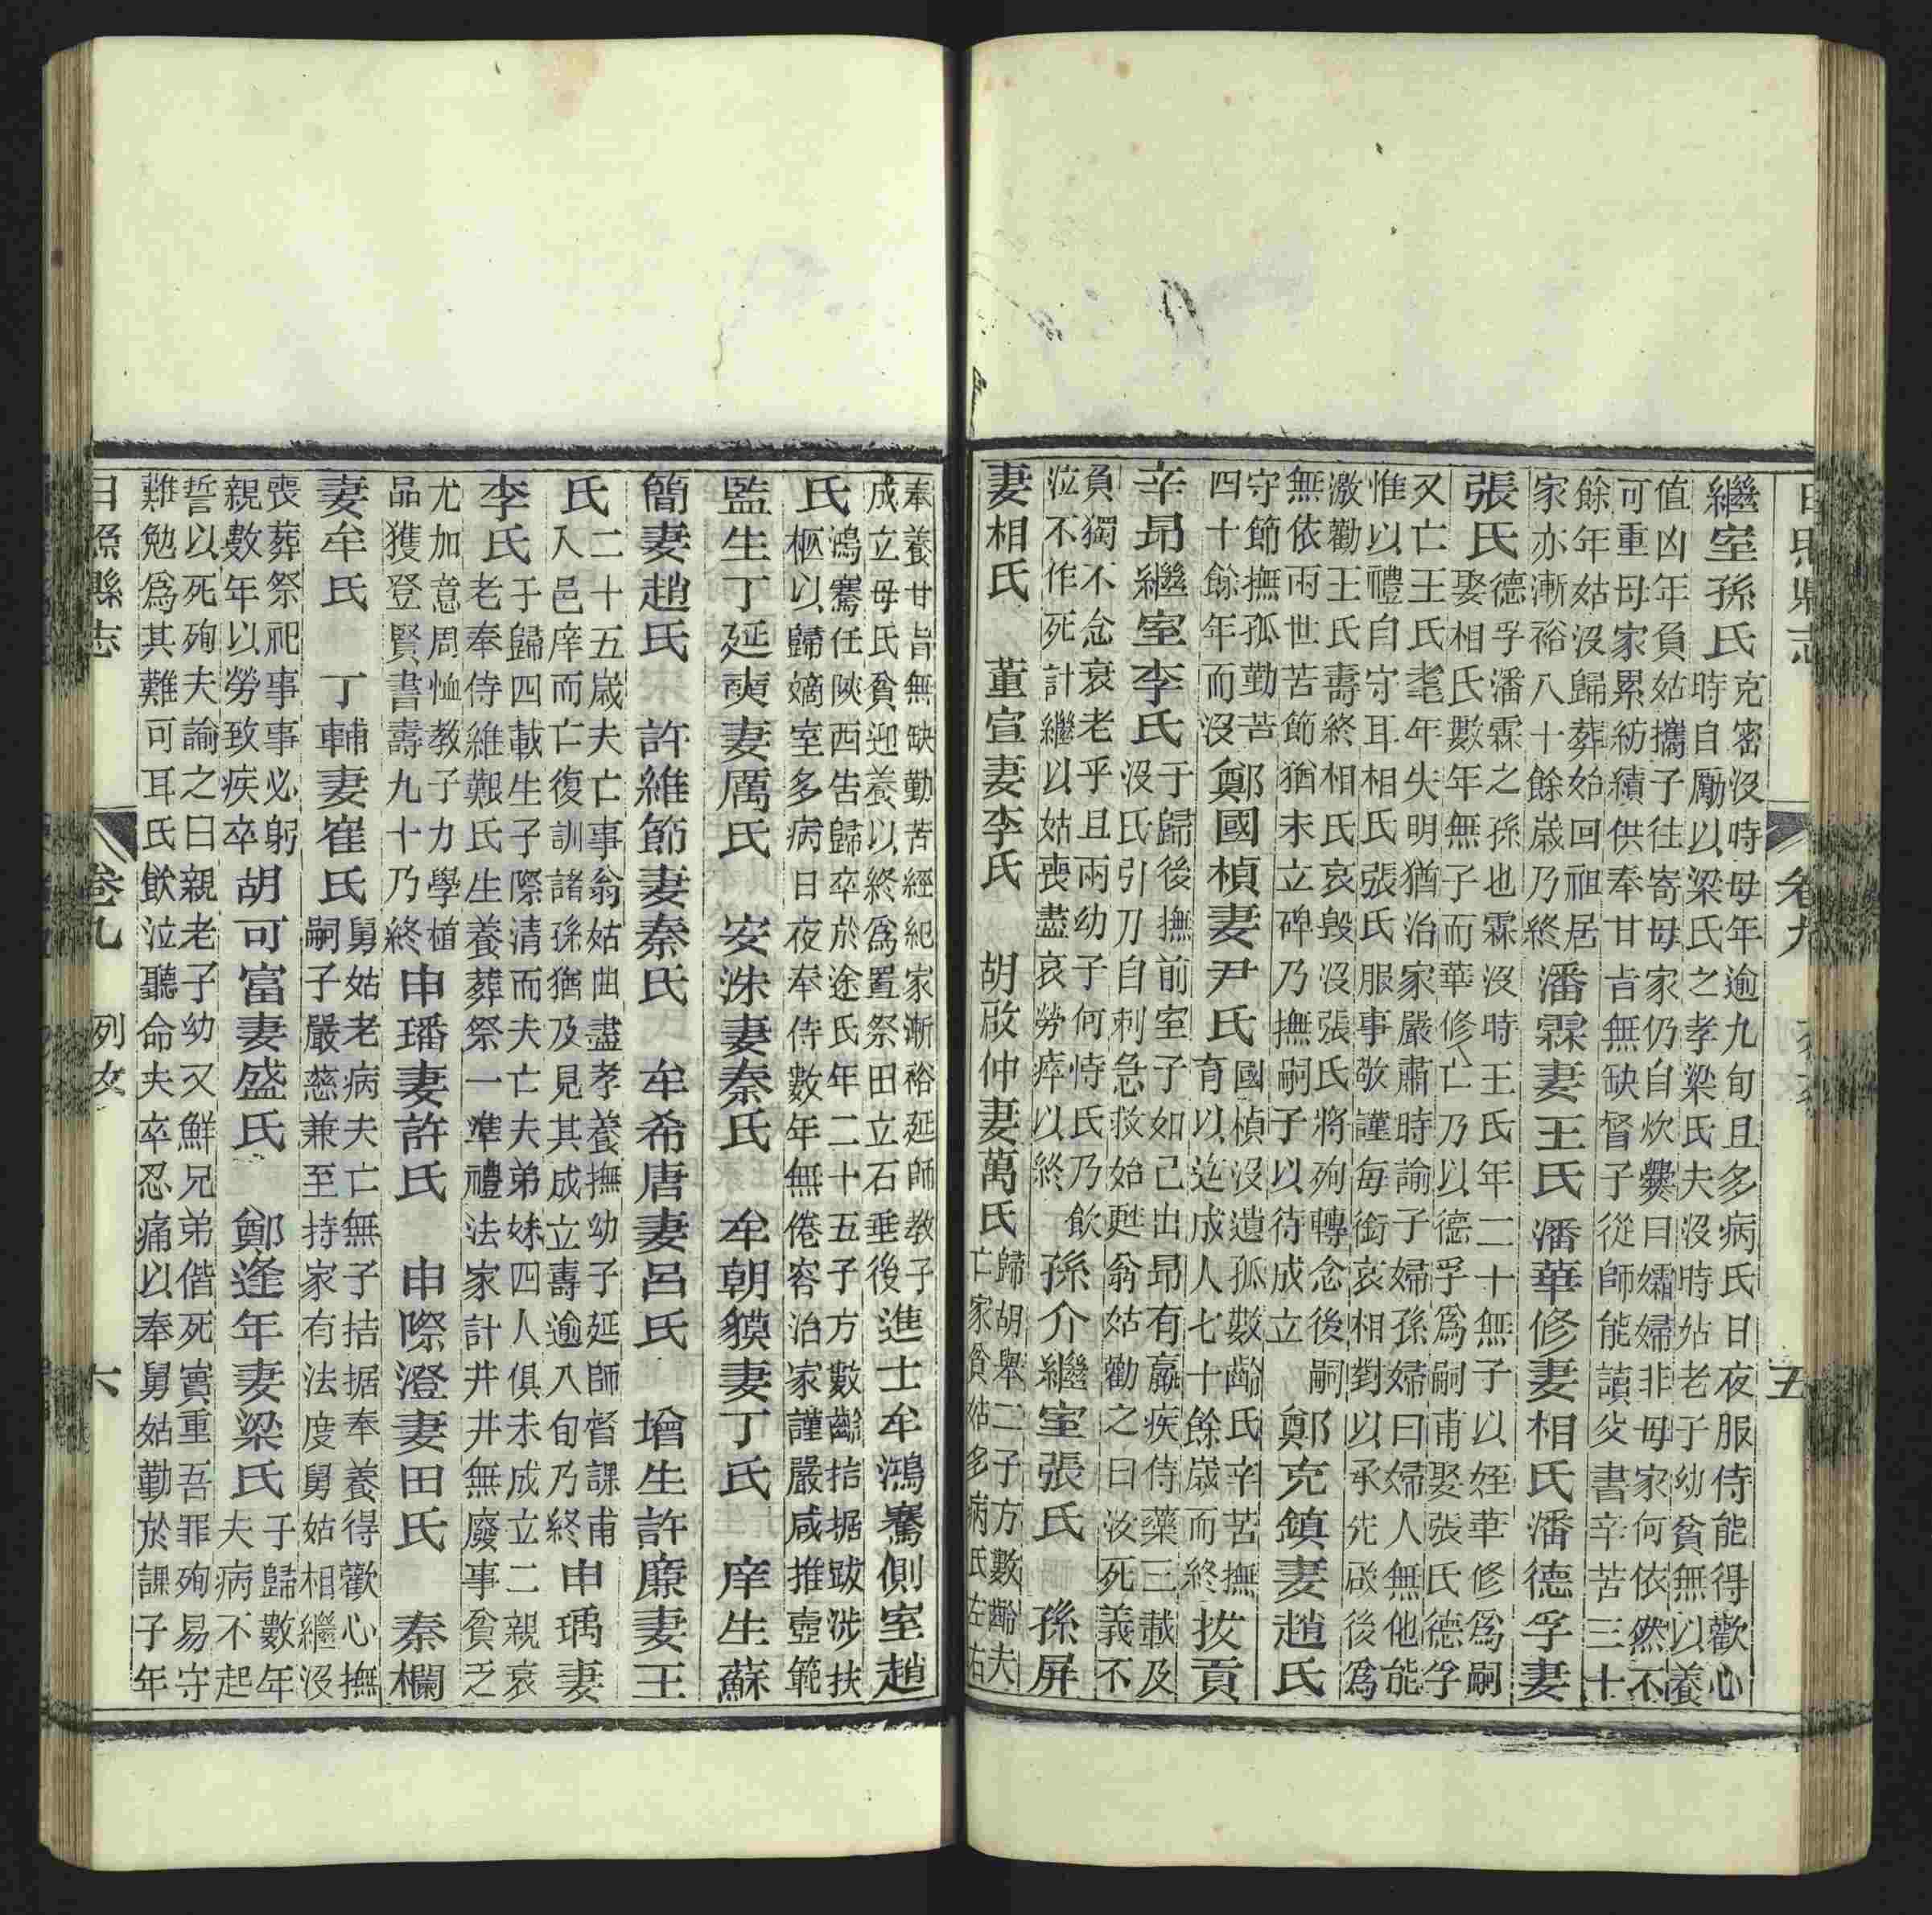 日照縣志 卷九 列女 五
繼室孫氏 克密沒時母年逾九旬且多病氏日夜服侍能得歡心
時自勵以梁氏之孝梁氏夫沒時姑老子幼貧無以養
值凶年負姑攜子往寄母家仍自炊爨曰孀婦非母家何依然不
可重母家累紡績供奉甘旨無缺督子從師能讀父書辛苦三十
餘年姑沒歸葬始回祖居
家亦漸裕八十餘歲乃終 潘霖妻王氏 潘華修妻相氏 潘德孚妻
張氏 德孚潘霖之孫也霖沒時王氏年二十無子以姪華修爲嗣
娶相氏數年無子而華修亡乃以德孚爲嗣甫娶張氏德孚
又亡王氏耄年失明猶治家嚴肅時諭子婦孫婦曰婦人無他能
惟以禮自守耳相氏張氏服事敬謹每銜哀相對以承先啟後爲
激勸王氏壽終相氏哀毀沒張氏將殉轉念後嗣
無依兩世苦節猶未立碑乃撫嗣子以待成立 鄭克鎮妻趙氏
守節撫孤勤苦
四十餘年而沒 鄭國楨妻尹氏 國楨沒遺孤數齡氏辛苦撫
育以迄成人七十餘歲而終 拔貢
辛昂繼室李氏 于歸後撫前室子如己出昂有羸疾侍藥三載及
沒氏引刀自刺急救始甦翁姑勸之曰汝死義不
負獨不念衰老乎且兩幼子何恃氏乃飲
泣不作死計繼以姑喪盡哀勞瘁以終 孫介繼室張氏 孫屏
妻相氏 董宣妻李氏 胡啟仲妻萬氏 歸胡舉二子方數齡夫
亡家貧姑多病氏左右
奉養甘旨無缺勤苦經紀家漸裕延師教子
成立母氏貧迎養以終爲置祭田立石垂後 進士牟鴻騫側室趙
氏 鴻騫任陝西告歸卒於途氏年二十五子方數齡拮据跋涉扶
柩以歸嫡室多病日夜奉侍數年無倦容治家謹嚴咸推壼範
監生丁延奭妻厲氏 安洙妻秦氏 牟朝貘妻丁氏 庠生蘇
簡妻趙氏 許維節妻秦氏 牟希唐妻呂氏 增生許廉妻王
氏 二十五歲夫亡事翁姑曲盡孝養撫幼子延師督課甫
入邑庠而亡復訓諸孫猶及見其成立壽逾八旬乃終 申瑀妻
李氏 于歸四載生子際清而夫亡夫弟妹四人俱未成立二親衰
老奉侍維艱氏生養葬祭一準禮法家計井井無廢事貧乏
尤加意周恤教子力學植
品獲登賢書壽九十乃終 申璠妻許氏 申際澄妻田氏 秦欄
妻牟氏 丁輔妻崔氏 舅姑老病夫亡無子拮据奉養得歡心撫
嗣子嚴慈兼至持家有法度舅姑相繼沒
喪葬祭祀事事必躬
親數年以勞致疾卒 胡可富妻盛氏 鄭逢年妻梁氏 子歸數年
夫病不起
誓以死殉夫諭之曰親老子幼又鮮兄弟偕死實重吾罪殉易守
難勉爲其難可耳氏飲泣聽命夫卒忍痛以奉舅姑勤於課子年
日照縣志 卷九 列女 六